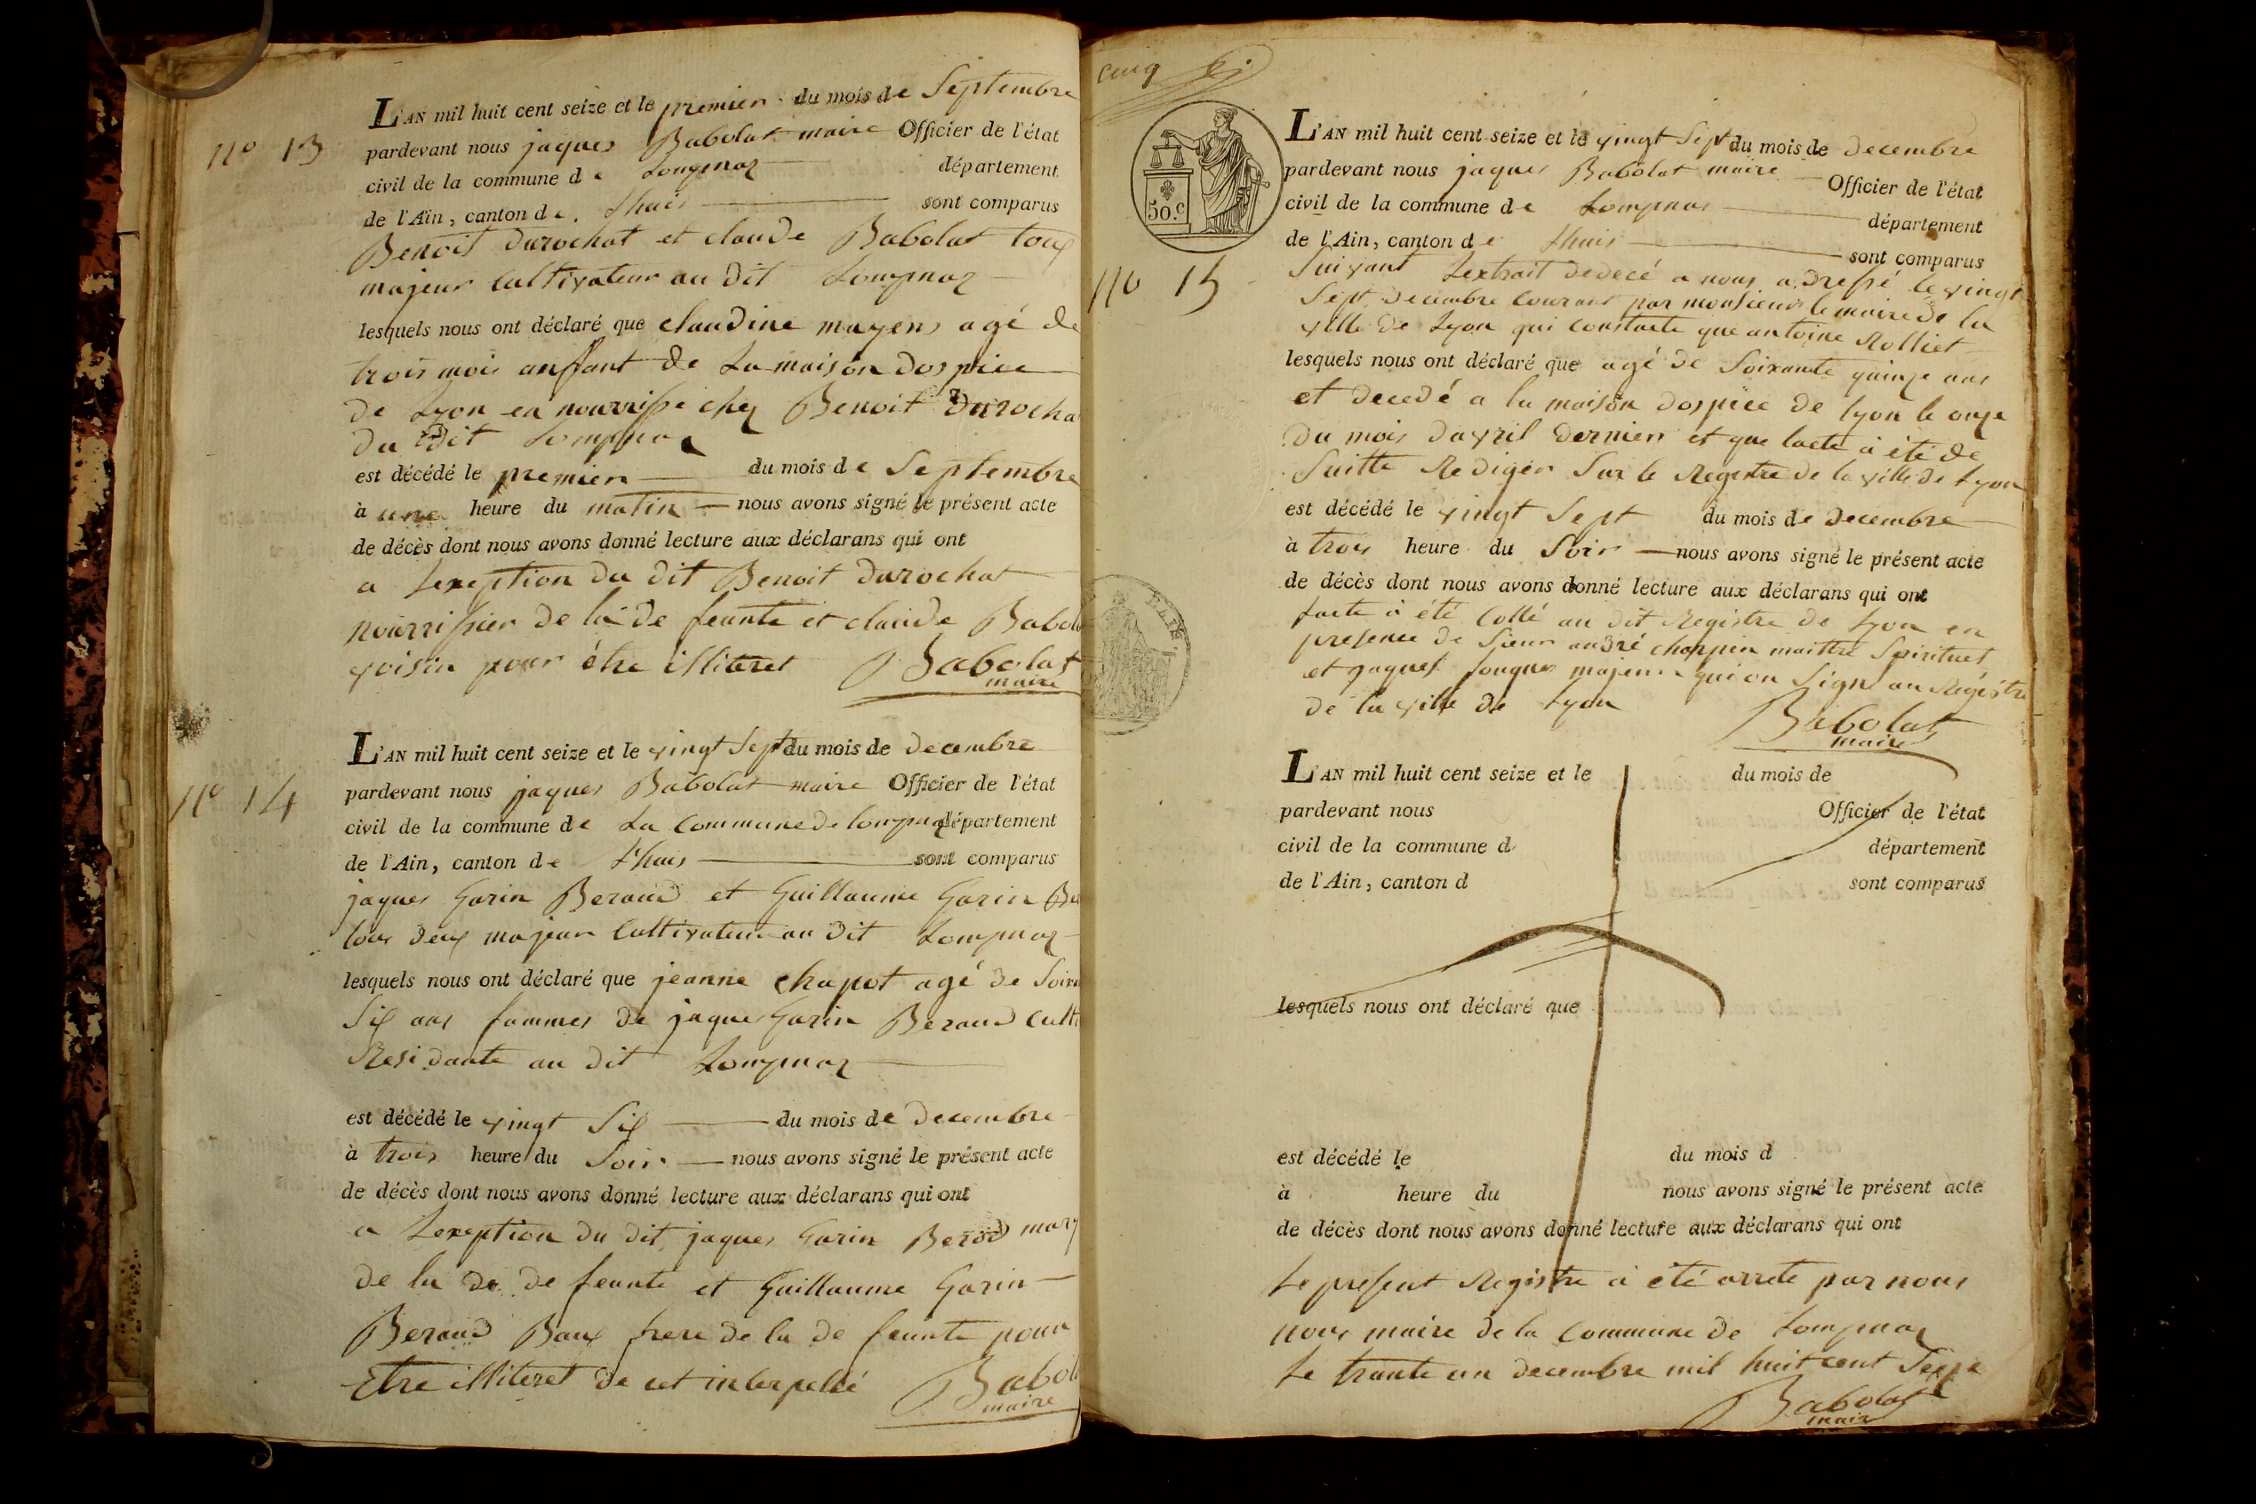 n° 13
L'AN mil huit cent seize et le premier du mois de Septembre
pardevant nous jaques Babolat maire Officier de l'état
civil de la commune de Lompnaz département
de l'Ain, canton de lhuis sont comparus
Benoit Durochat et claude Babolat tous
majeur Cultivateur au dit Lompnaz
lesquels nous ont déclaré que claudine mayens agé de
trois mois anffant de La maison dospice
de Lyon en nourrisse chez Benoit Durocha
du dit Lompnaz
est décédé le premier du mois de Septembre
à une heure du matin nous avons signé le présent acte
de décès dont nous avons donné lecture aux déclarans qui ont
a Lexeption du dit Benoit Durochat
nourrissier de la de feunte et claude Babola
voisin pour être illiteret Babolat
maire
n° 14
L'AN mil huit cent seize et le vingt Sept du mois de decembre
pardevant nous jaques Babolat maire Officier de l'état
civil de la commune de La Commune de lompnaz département
de l'Ain, canton de lhuis sont comparus
jaques Garin Beraud et Guillaume Garin Be
tous deux majeur Cultivateur au dit Lompnaz
lesquels nous ont déclaré que jeanne chapot agé de Soixa
Six ans fammes de jaques Garin Beraud Culti
Residante au dit Lompnaz
est décédé le vingt Six du mois de decembre
à trois heure du Soir nous avons signé le présent acte
de décès dont nous avons donné lecture aux déclarans qui ont
a Lexeption du dit jaques Garin Berod mary
de la de de feunte et Guillaume Garin
Beraud Baux frere de la de feunte pour
Etre illiteret de cet interpellé Babol
maire
cinq
50.c
n° 15
L'AN mil huit cent seize et le vingt Sept du mois de decembre
pardevant nous jaques Babolat maire Officier de l'état
civil de la commune de Lompnas département
de l'Ain, canton de lhuis sont comparus
Suivant Lextrait dedecé a nous adressé le vingt
Sept decembre Courant par monsieur le maire de la
ville de Lyon qui constacte que antoine Rolliet
lesquels nous ont déclaré que agé de Soixante quinze ans
et decedé a la maison dospice de lyon le onze
du mois davril dernier et que lacte à été de
Suitte Rediger Sur le Regestre de la ville de Lyon
est décédé le vingt Sept du mois de decembre
à trois heure du Soir nous avons signé le présent acte
de décès dont nous avons donné lecture aux déclarans qui ont
lacte à été Collé au dit Registre de Lyon en
presence de Sieur andré chappin maittre Spirituel
et jaques majeur qui on Signé au Régistre
de la ville de Lyon
Babolat
maire
L'AN mil huit cent seize et le du mois de
pardevant nous Officier de l'état
civil de la commune d département
de l'Ain, canton d sont comparus
lesquels nous ont déclaré que
est décédé le du mois d
à heure du nous avons signé le présent acte
de décès dont nous avons donné lecture aux déclarans qui ont
Le present Registre à été arreté par nous
nous maire de la Commune de Lompnaz
Le trante un decembre mil huit cent Seize
Babolat
maire